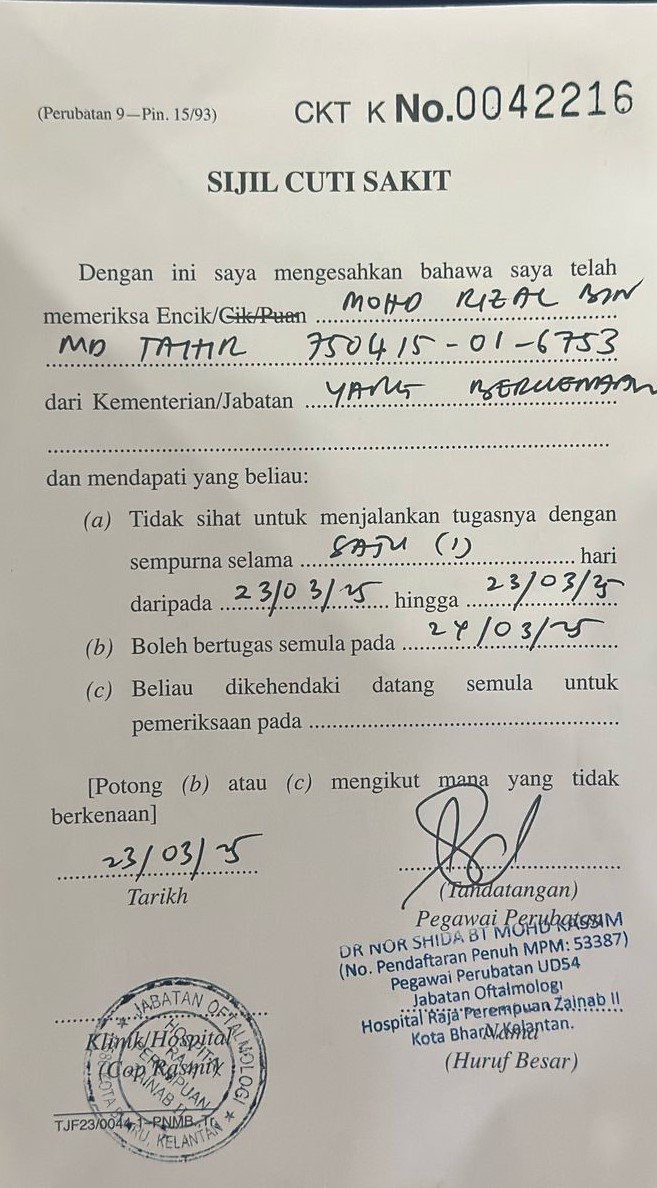 (Perubatan 9—Pin. 15/93)
CKT K No.0042216
SIJIL CUTI SAKIT
Dengan ini saya mengesahkan bahawa saya telah
memeriksa Encik/Cik/Puan MOHD RIZAL BIN
MD TAHIR 750415-01-6753
dari Kementerian/Jabatan YANG BERKENAAN
dan mendapati yang beliau:
(a) Tidak sihat untuk menjalankan tugasnya dengan
sempurna selama SATU (1) hari
daripada 23/03/25 hingga 23/03/25
(b) Boleh bertugas semula pada 24/03/25
(c) Beliau dikehendaki datang semula untuk
pemeriksaan pada
[Potong (b) atau (c) mengikut mana yang tidak
berkenaan]
23/03/25
Tarikh
(Tandatangan)
Pegawai Perubatan
DR NOR SHIDA BT MOHD KASSIM
(No. Pendaftaran Penuh MPM: 53387)
Pegawai Perubatan UD54
Jabatan Oftalmologi
Hospital Raja Perempuan Zainab II
Kota Bharu, Kelantan.
Nama
(Huruf Besar)
Klinik/Hospital
(Cop Rasmi)
JABATAN OFTALMOLOGI
HOSPITAL
RAJA
PEREMPUAN
ZAINAB II
KOTA BHARU, KELANTAN
TJF23/0044.1-PNMB.,Tr.